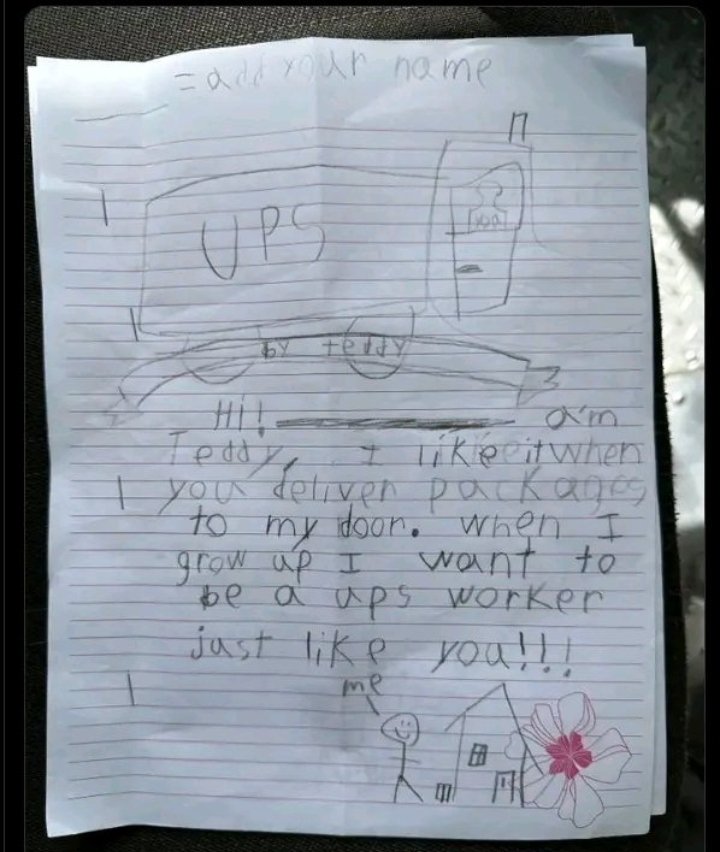 = add your name
UPS
you
by teddy
Hi! a'm
Teddy, I like it when
you deliver packages
to my door. When I
grow up I want to
be a ups worker
just like you!!!
me